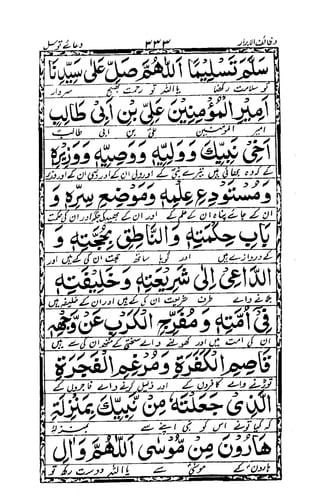 وظائف الابرار ٢٣٣ دعائے توسل
سَلِّمْ تَسْلِيْمًا اَللّٰهُمَّ صَلِّ عَلٰى سَيِّدِنَا
کو سلامت رکھنا یا اللہ تو رحمت بھیج سردار
اَمِيْرِ الْمُؤْمِنِيْنَ عَلِيِّ بْنِ اَبِيْ طَالِبٍ
امیر المومنین علی بن ابی طالب
اَخِيْ نَبِيِّكَ وَوَلِيِّهٖ وَوَصِيِّهٖ وَوَزِيْرِهٖ
کے کہ وہ بھائی ہیں تیرے نبی کے اور ولی ان کے اور وصی ان کے اور وزیر
وَمُسْتَوْدَعِ عِلْمِهٖ وَمَوْضِعِ سِرِّهٖ وَ
ان کے جائے پناہ ان کے علم کے اور ان کے بھید کی جگہ اور ان کی حکمت
بَابِ حِكْمَتِهٖ وَالنَّاطِقِ بِحُجَّتِهٖ وَ
کے دروازے ہیں اور گویا ساتھ حجت ان کی کے ہیں اور
الدَّاعِيْ اِلٰى شَرِيْعَتِهٖ وَخَلِيْفَتِهٖ
بلانے والے طرف شریعت ان کی کے ہیں اور ان کے خلیفہ ہیں
فِيْ اُمَّتِهٖ وَمُفَرِّجِ الْكَرْبِ عَنْ وَجْهِهٖ
ان کی امت میں اور کھولنے والے سختی کے منہ ان کی سے ہیں
قَاصِمِ الْكَفَرَةِ وَمُرْغِمِ الْفَجَرَةِ
توڑنے والے کافروں کے اور ذلیل کرنے والے فاجروں کے
الَّذِيْ جَعَلْتَهٗ مِنْ نَبِيِّكَ بِمَنْزِلَةِ
کہ کیا تو نے اس کو نبی اپنے سے بمنزلہ
هَارُوْنَ مِنْ مُوْسٰى اَللّٰهُمَّ وَالِ
ہارون کے موسیٰ سے یا اللہ دوست رکھ تو